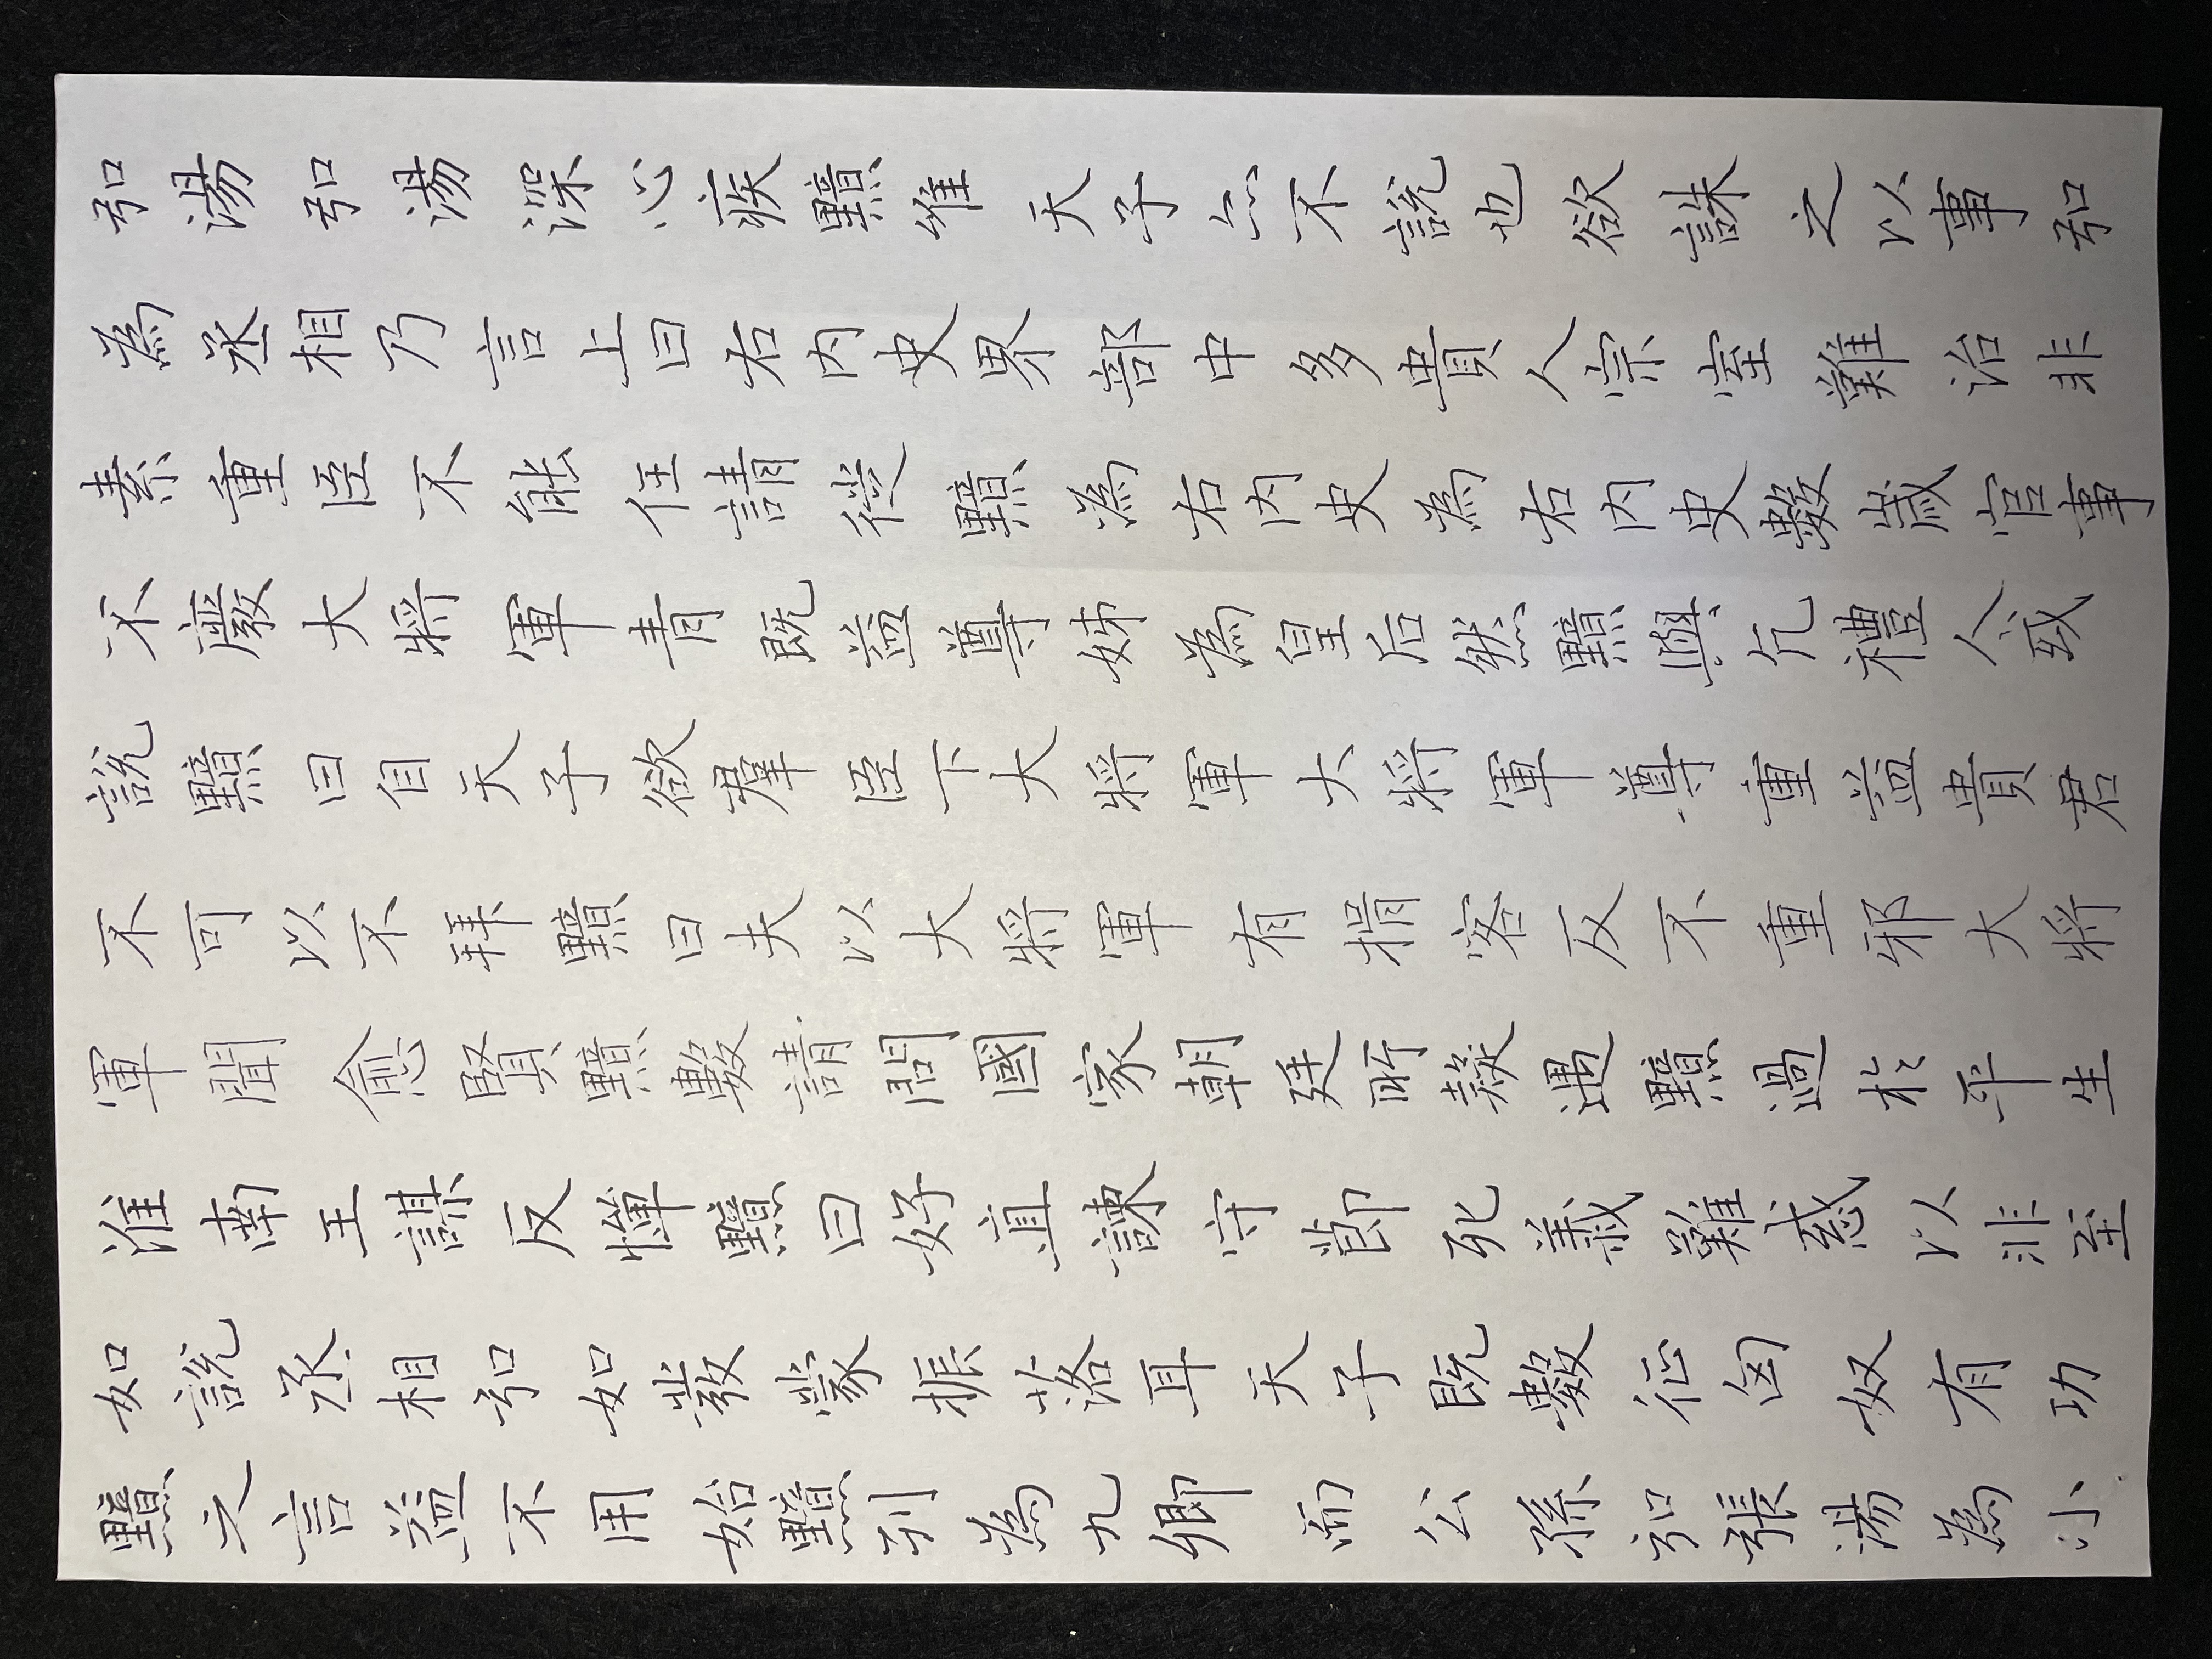 弘湯弘湯深心疾黯唯天子亦不說也欲誅之以事弘
為丞相乃言上曰右內史界部中多貴人宗室難治非
素重臣不能任請徙黯為右內史為右內史數歲官事
不廢大將軍青既益尊姊為皇后然黯與亢禮人或
說黯曰自天子欲羣臣下大將軍大將軍尊重益貴君
不可以不拜黯曰夫以大將軍有揖客反不重邪大將
軍聞愈賢黯數請問國家朝廷所疑遇黯過於平生
淮南王謀反憚黯曰好直諫守節死義難惑以非至
如說丞相弘如發蒙振落耳天子既數征匈奴有功
黯之言益不用始黯列為九卿而公孫弘張湯為小